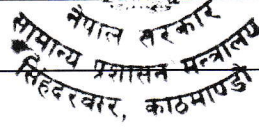 नेपाल सरकार
सामान्य प्रशासन मन्त्रालय
सिंहदरवार, काठमाण्डौ